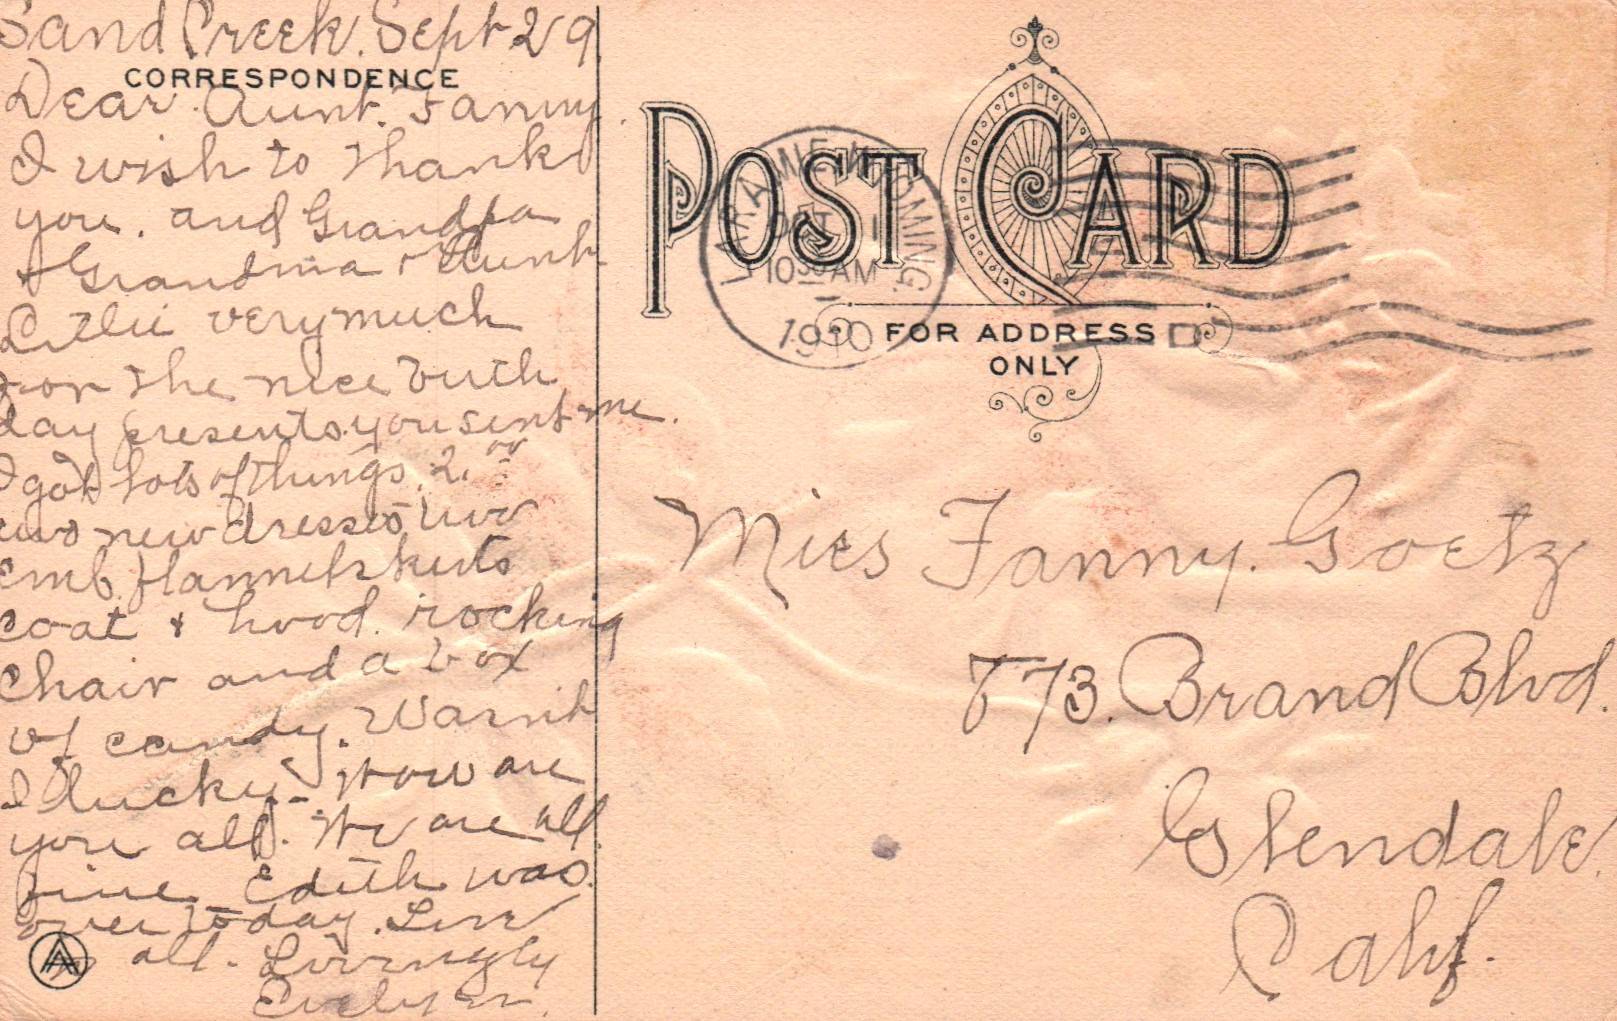 Sand Creek. Sept 29
CORRESPONDENCE
Dear Aunt. Fanny.
I wish to thank
you. and Grandpa
+ Grandma + Aunt
very much
for the nice birth
day presents you sent me.
I got lots of things. 2.00
two new dresses two
emb. flannel skirts
coat + hood. rocking
chair and a box
of candy. Wasnt
I lucky. How are
you all. We are all
fine. Edith was
over today. Love
to all. Lovingly
Evelyn.
POST CARD
LARAMIE, WYOMING.
OCT 1
10 30 AM
1910
FOR ADDRESS
ONLY
Miss Fanny. Goetz
773. Brand Blvd.
Glendale.
Calif.
A